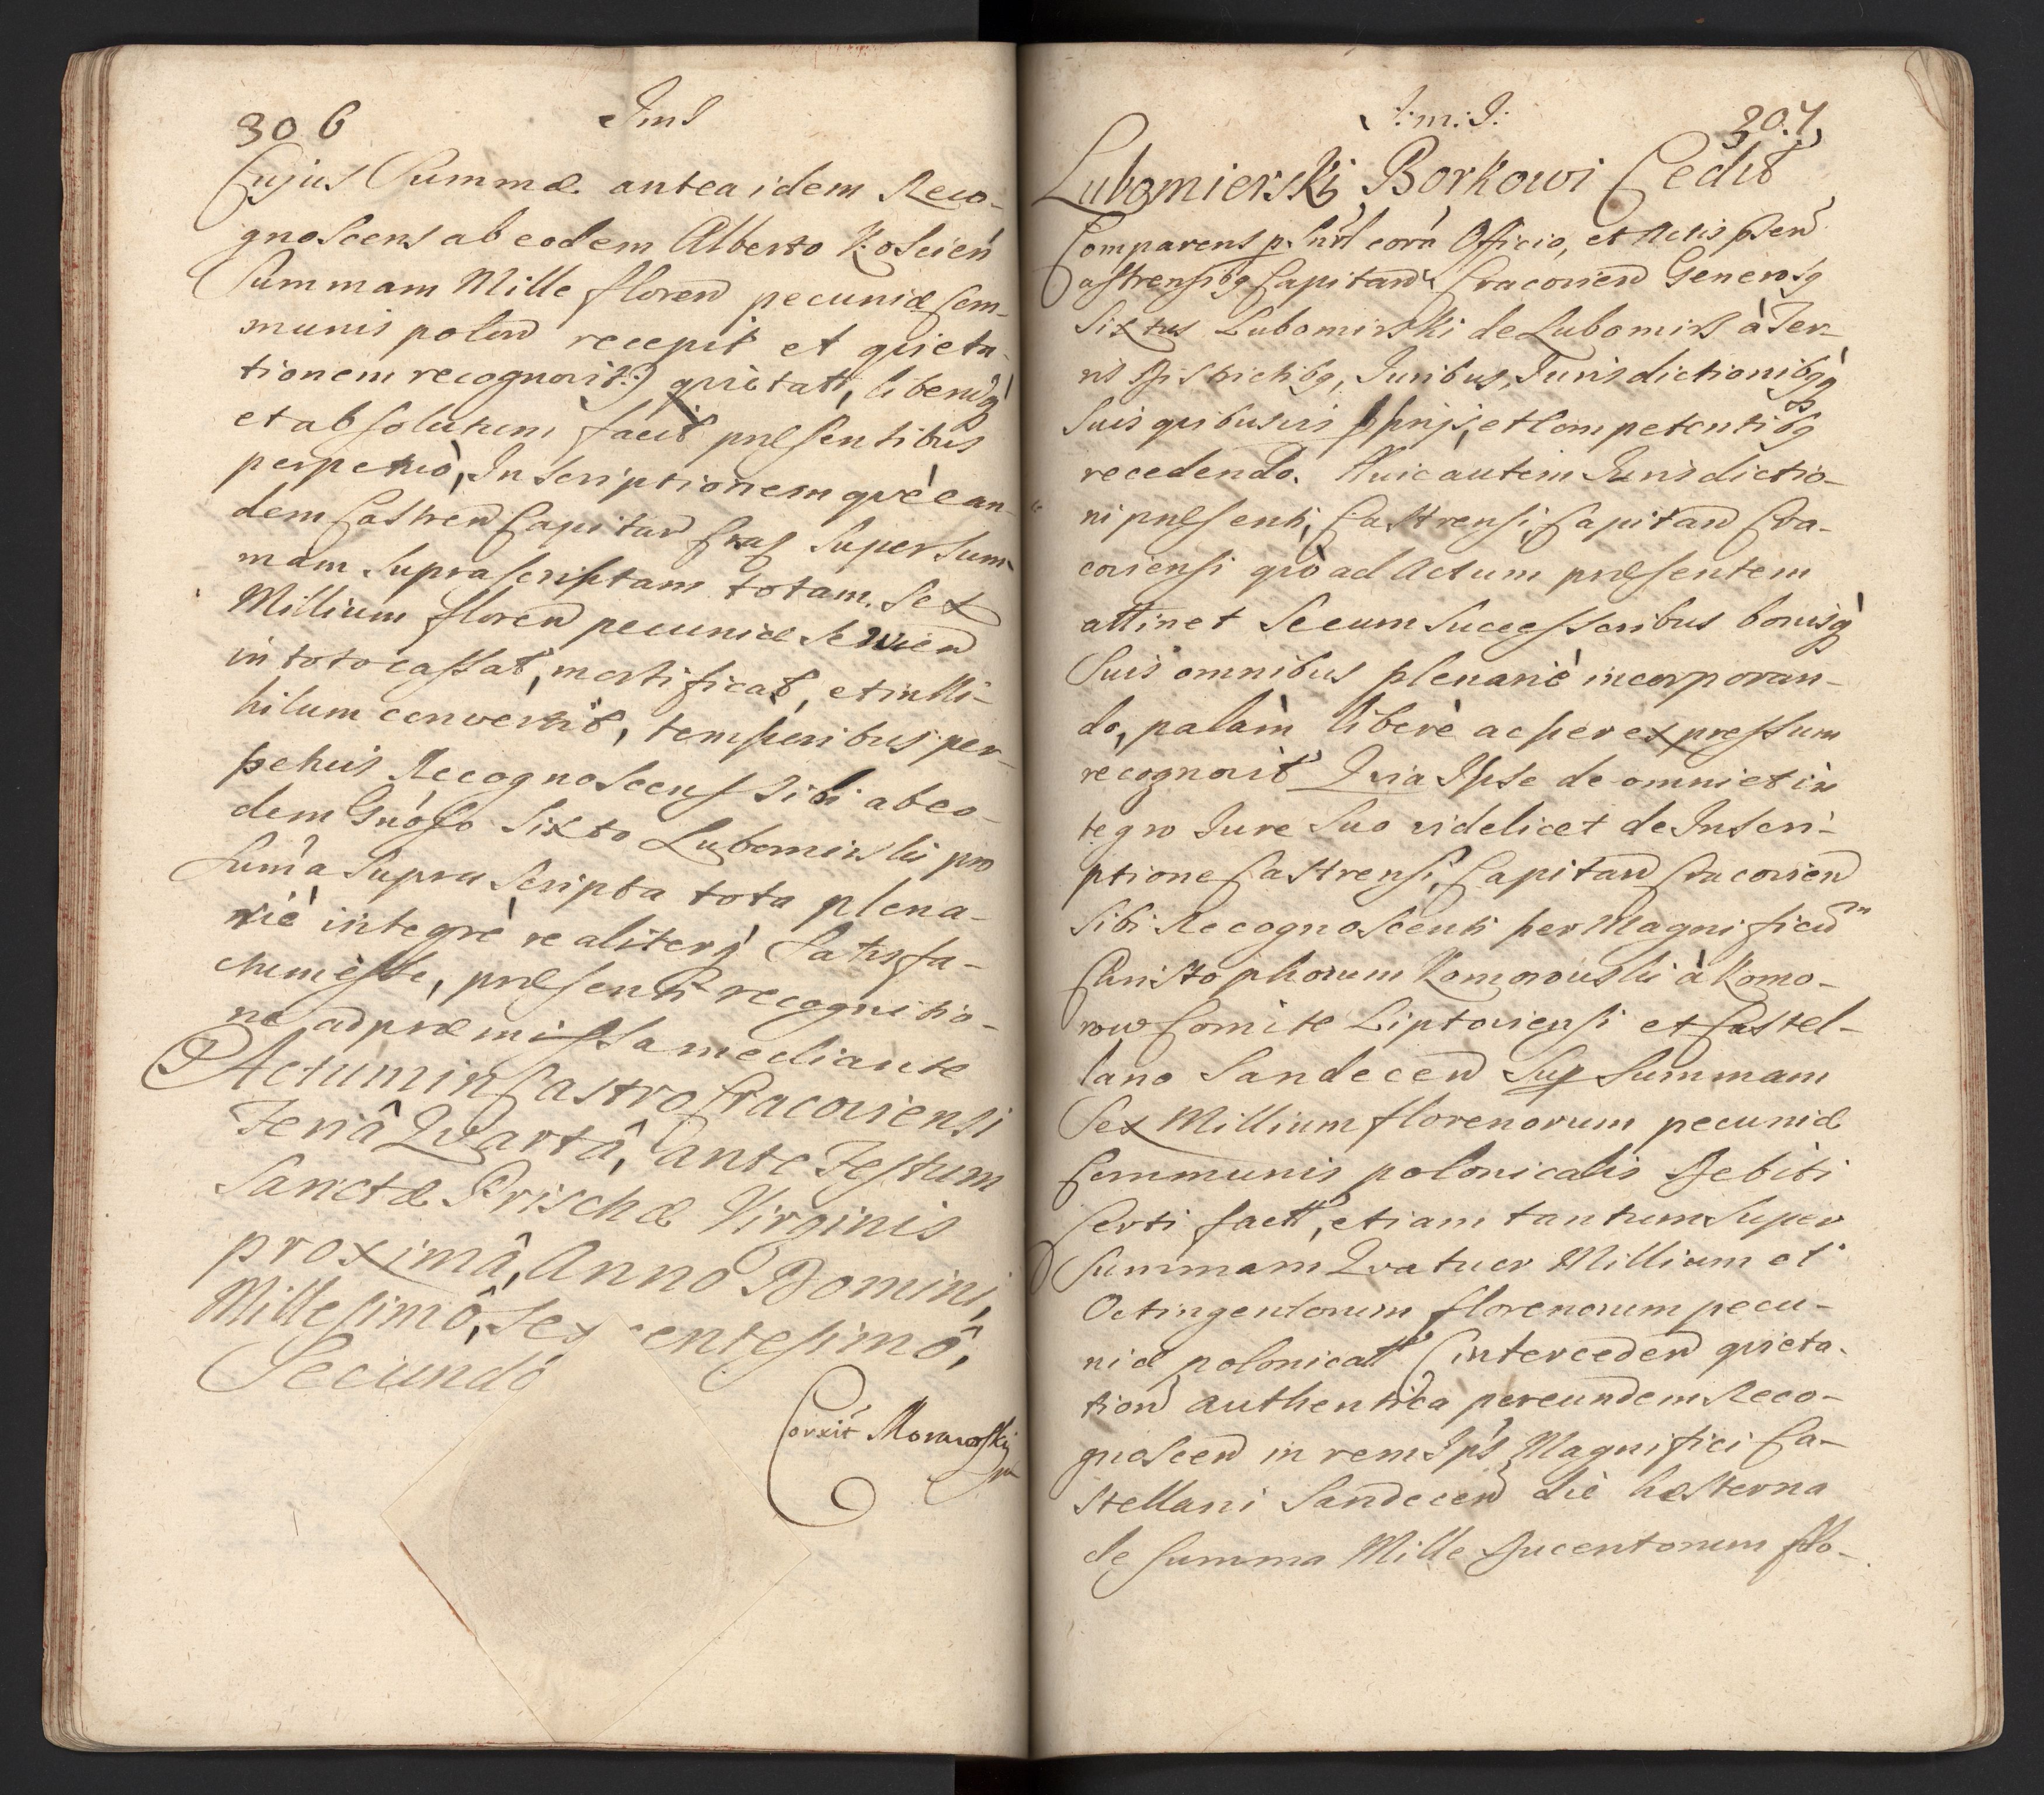 306
JmJ
Cujus Summæ antea idem Reco-
gnoscens ab eodem Alberto Koscień
Summam Mille floren pecuniæ Com-
munis polon recepit et quieta-
tionem recognovit:) quietat, liberuq
et absolutum facit præsentibus
perpetuò, Inscriptionem què ean-
dem Castren Capitan Crac Super Sum-
mam Suprascriptam totam Sex
Millium floren pecuniæ
in toto cassat, mortificat, et in Ni-
hilum convertit, temporibus per-
petuis Recognoscens Sibi ab eo-
dem Gnoso Sixto Lubomirski pro
Suma Supra Scripta tota plena-
riè integrè realiterq Satisfa-
ctum esse, præsenti recognitio-
ne ad præmissa mediante
Actum in Castro Cracoviensi
Feriâ Quartâ, ante Festum
Sanctæ Prischæ Virginis
proximâ, Anno Domini,
Millesimô, Sexcentesimô,
Secundô
Corxit Morawski
mp
J:m:J:
307
Lubomierski Borkowi Cedit
Comparens psnał corà Officio, et Actis psen
Castrensibq Capitan Cracovien Generosq
Sixtus Lubomirski de Lubomirz à Ter-
ris Districtibq, Juribus, Jurisdictionibqq
Suis quibusvis pprijs, et Competentibq
recedendo. Huic autem Jurisdictio-
ni præsenti, Castrensi, Capitan Cra-
coviensi quò ad Actum præsentem
attinet Se cum Successoribus bonisq
Suis omnibus plenariè incorporan-
do, palàm liberè ac per expressum
recognovit Quia Ipse de omni et in
tegro Jure Suo videlicet de Inscri-
ptione Castrensi, Capitan Cracovien
Sibi Recognoscenti per Magnificum
Christophorum Komorowski à Komo-
row Comite Liptoviensi et Castel-
lano Sandecen Sup Summam
Sex Millium florenorum pecuniæ
Communis polonicalis Debiti
Certi fact, etiam tantum Super
Summam Quatuor Millium et
Octingentorum florenorum pecu-
niæ polonicall (interceden quieta-
tion authentica per eundem Reco-
gnoscen in rem Ips Magnifici Ca-
stellani Sandecen die hesterna
de summa Mille Ducentorum flo-